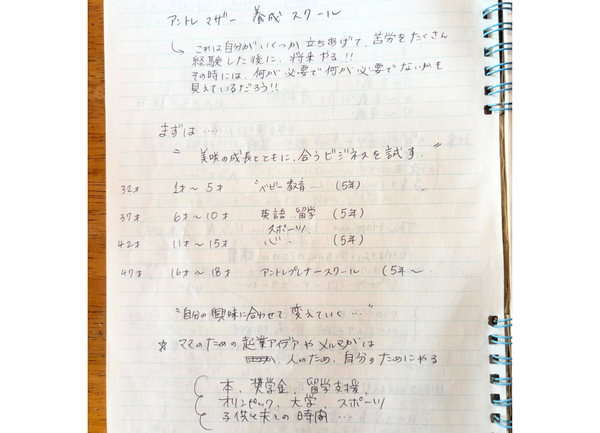 アントレマザー 養成スクール
これは自分がいくつか立ちあげて、苦労をたくさん
経験した後に、将来やる!!
その時には、何が必要で何が必要でないかも
見えているだろう!!
まずは…
"美咲の成長とともに、合うビジネスを試す。"
32才 1才〜5才 ベビー教育… (5年)
37才 6才〜10才 英語、留学 (5年)
スポーツ
42才 11才〜15才 心。 (5年)
47才 16才〜18才 アントレプレナースクール (5年〜
"自分の興味に合わせて、変えていく…"
☆ ママのための起業アイデアやメルマガは
人のため、自分のためにやる
本、奨学金、留学支援、
オリンピック、大学、スポーツ
子供と夫との時間…